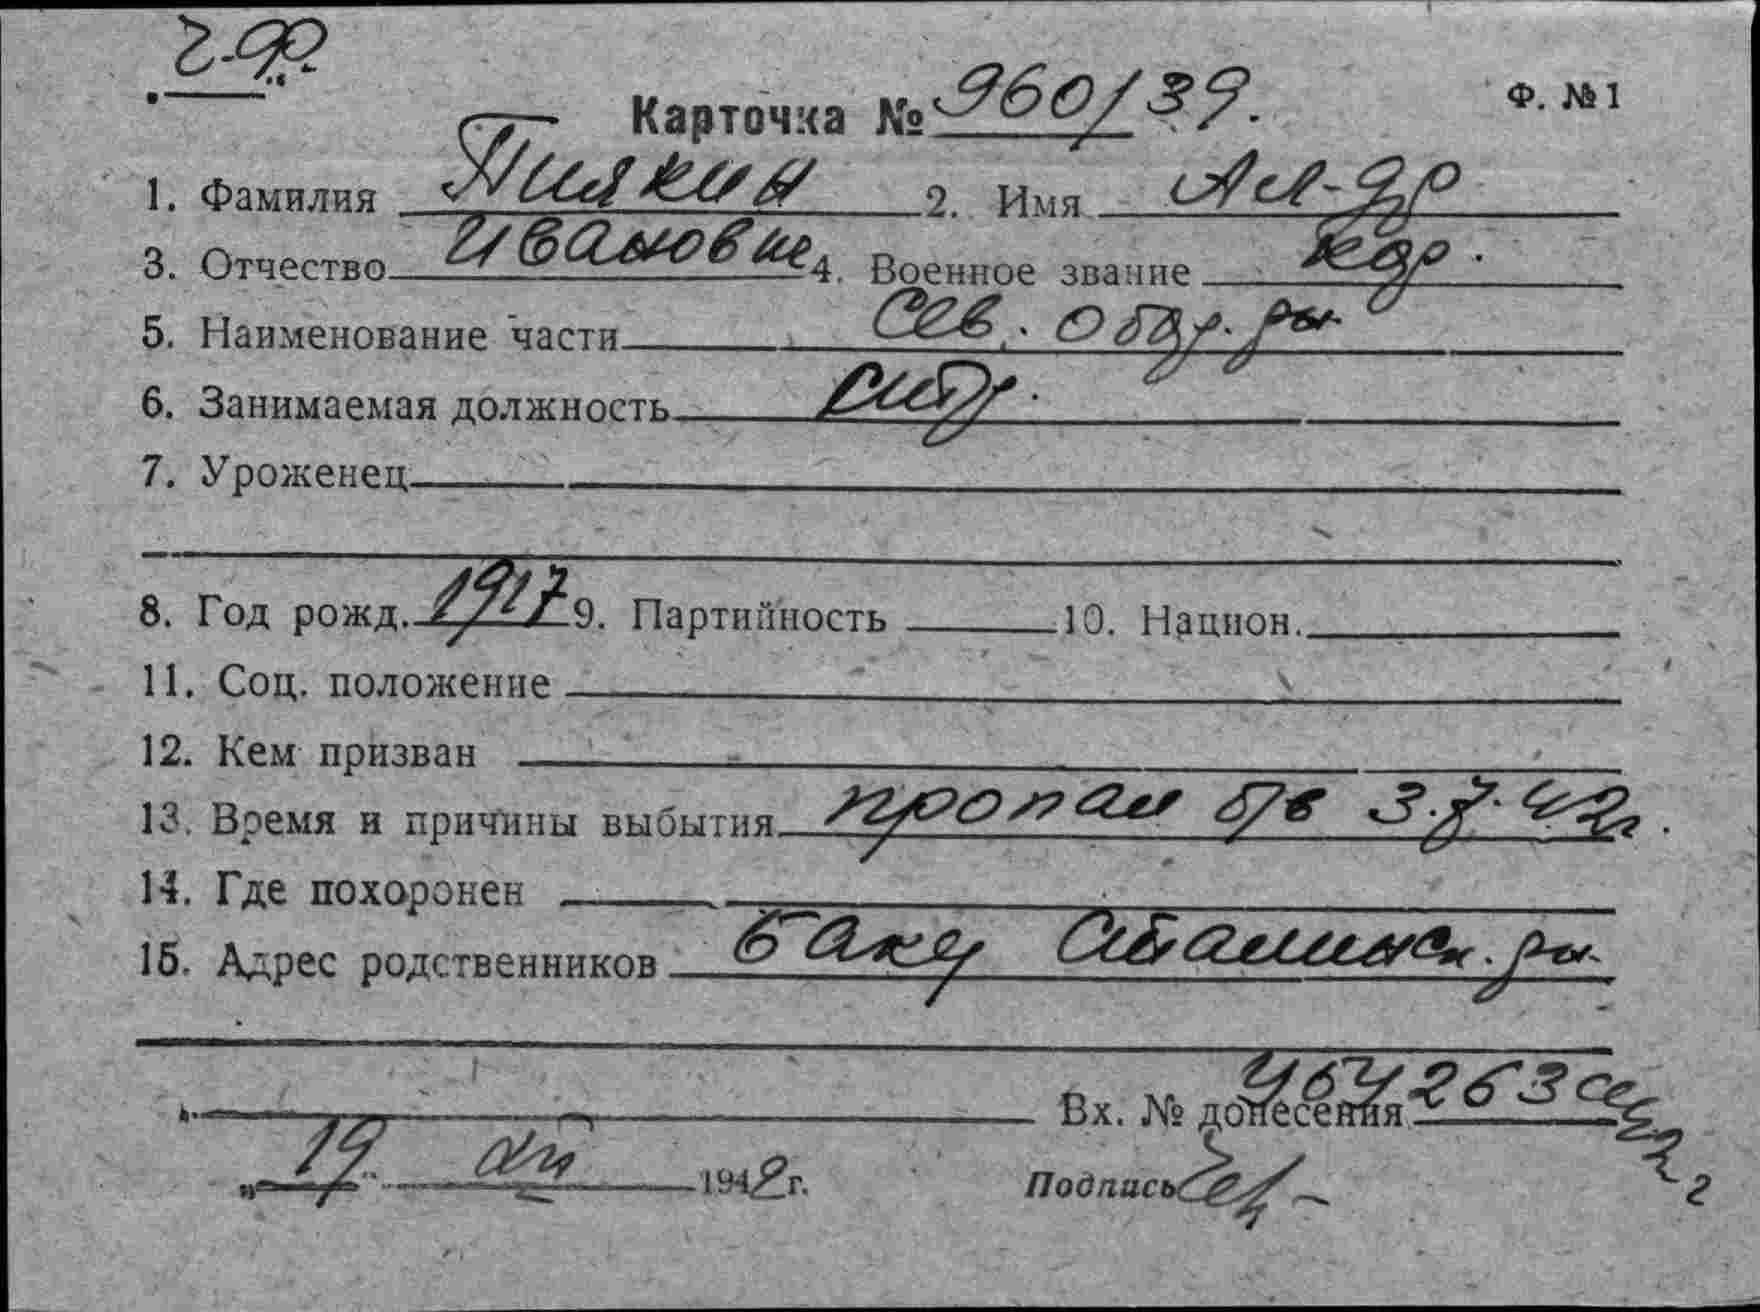 Карточка № 960/39. Ф. №1
1. Фамилия Пилякин 2. Имя Ал-др
3. Отчество Иванович 4. Военное звание кр.
5. Наименование части Сев. обор. р-н
6. Занимаемая должность
7. Уроженец
8. Год рожд. 1917 9. Партийность 10. Национ.
11. Соц. положение
12. Кем призван
13. Время и причины выбытия пропал б/в 3.7.42г.
14. Где похоронен
15. Адрес родственников Баку Сталинск. р-н
Вх. № донесения
„19" 1942г. Подпись